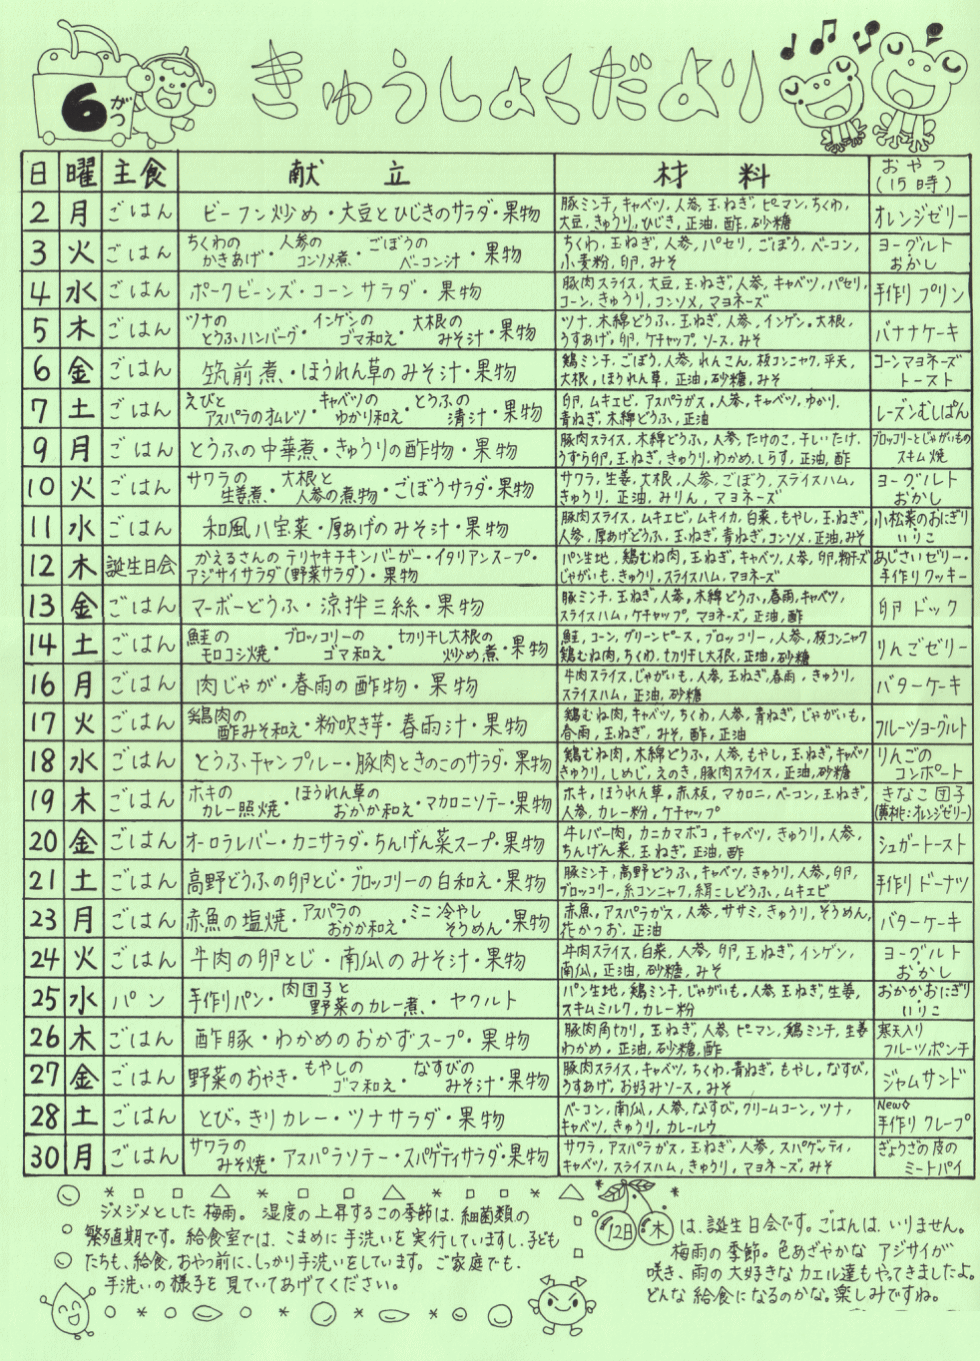 6
がつ
きゅうしょくだより
日 曜 主食 献立 材料 おやつ
(15時)
2 月 ごはん ビーフン炒め・大豆とひじきのサラダ・果物 豚ミンチ,キャベツ,人参,玉ねぎ,ピーマン,ちくわ, オレンジゼリー
大豆,きゅうり,ひじき,正油,酢,砂糖
3 火 ごはん ちくわのかきあげ・人参のコンソメ煮・ごぼうのベーコン汁・果物 ちくわ,玉ねぎ,人参,パセリ,ごぼう,ベーコン, ヨーグルト
小麦粉,卵,みそ おかし
4 水 ごはん ポークビーンズ・コーンサラダ・果物 豚肉スライス,大豆,玉ねぎ,人参,キャベツ,パセリ, 手作りプリン
コーン,きゅうり,コンソメ,マヨネーズ
5 木 ごはん ツナのとうふハンバーグ・インゲンのゴマ和え・大根のみそ汁・果物 ツナ,木綿どうふ,玉ねぎ,人参,インゲン,大根, バナナケーキ
うすあげ,卵,ケチャップ,ソース,みそ
6 金 ごはん 筑前煮・ほうれん草のみそ汁・果物 鶏ミンチ,ごぼう,人参,れんこん,板コンニャク,平天, コーンマヨネーズ
大根,ほうれん草,正油,砂糖,みそ トースト
7 土 ごはん えびとアスパラのオムレツ・キャベツのゆかり和え・とうふの清汁・果物 卵,ムキエビ,アスパラガス,人参,キャベツ,ゆかり, レーズンむしぱん
青ねぎ,木綿どうふ,正油
9 月 ごはん とうふの中華煮・きゅうりの酢物・果物 豚肉スライス,木綿どうふ,人参,たけのこ,干しいたけ, ブロッコリーとじゃがいもの
うずら卵,玉ねぎ,きゅうり,わかめ,しらす,正油,酢 スキム焼
10 火 ごはん サワラの生姜煮・大根と人参の煮物・ごぼうサラダ・果物 サワラ,生姜,大根,人参,ごぼう,スライスハム, ヨーグルト
きゅうり,正油,みりん,マヨネーズ おかし
11 水 ごはん 和風八宝菜・厚あげのみそ汁・果物 豚肉スライス,ムキエビ,ムキイカ,白菜,もやし,玉ねぎ, 小松菜のおにぎり
人参,厚あげどうふ,玉ねぎ,青ねぎ,コンソメ,正油,みそ いりこ
12 木 誕生日会 かえるさんのテリヤキチキンバーガー・イタリアンスープ・ パン生地,鶏むね肉,玉ねぎ,キャベツ,人参,卵,粉チーズ あじさいゼリー・
アジサイサラダ(野菜サラダ)・果物 じゃがいも,きゅうり,スライスハム,マヨネーズ 手作りクッキー
13 金 ごはん マーボーどうふ・涼拌三絲・果物 豚ミンチ,玉ねぎ,人参,木綿どうふ,春雨,キャベツ, 卵ドック
スライスハム,ケチャップ,マヨネーズ,正油,酢
14 土 ごはん 鮭のモロコシ焼・ブロッコリーのゴマ和え・切り干し大根の炒め煮・果物 鮭,コーン,グリーンピース,ブロッコリー,人参,板コンニャク りんごゼリー
鶏むね肉,ちくわ,切り干し大根,正油,砂糖
16 月 ごはん 肉じゃが・春雨の酢物・果物 牛肉スライス,じゃがいも,人参,玉ねぎ,春雨,きゅうり, バターケーキ
スライスハム,正油,砂糖
17 火 ごはん 鶏肉の酢みそ和え・粉吹き芋・春雨汁・果物 鶏むね肉,キャベツ,ちくわ,人参,青ねぎ,じゃがいも, フルーツヨーグルト
春雨,玉ねぎ,みそ,酢,正油
18 水 ごはん とうふチャンプルー・豚肉ときのこのサラダ・果物 鶏むね肉,木綿どうふ,人参,もやし,玉ねぎ,キャベツ りんごの
きゅうり,しめじ,えのき,豚肉スライス,正油,砂糖 コンポート
19 木 ごはん ホキのカレー照焼・ほうれん草のおかか和え・マカロニソテー・果物 ホキ,ほうれん草,赤板,マカロニ,ベーコン,玉ねぎ, きなこ団子
人参,カレー粉,ケチャップ (黄桃:オレンジゼリー)
20 金 ごはん オーロラレバー・カニサラダ・ちんげん菜スープ・果物 牛レバー肉,カニカマボコ,キャベツ,きゅうり,人参, シュガートースト
ちんげん菜,玉ねぎ,正油,酢
21 土 ごはん 高野どうふの卵とじ・ブロッコリーの白和え・果物 豚ミンチ,高野どうふ,キャベツ,きゅうり,人参,卵, 手作りドーナツ
ブロッコリー,糸コンニャク,絹こしどうふ,ムキエビ
23 月 ごはん 赤魚の塩焼・アスパラのおかか和え・ミニ冷やしそうめん・果物 赤魚,アスパラガス,人参,ササミ,きゅうり,そうめん, バターケーキ
花かつお,正油
24 火 ごはん 牛肉の卵とじ・南瓜のみそ汁・果物 牛肉スライス,白菜,人参,卵,玉ねぎ,インゲン, ヨーグルト
南瓜,正油,砂糖,みそ おかし
25 水 パン 手作りパン・肉団子と野菜のカレー煮・ヤクルト パン生地,鶏ミンチ,じゃがいも,人参,玉ねぎ,生姜, おかかおにぎり
スキムミルク,カレー粉 いりこ
26 木 ごはん 酢豚・わかめのおかずスープ・果物 豚肉角切り,玉ねぎ,人参,ピーマン,鶏ミンチ,生姜 寒天入り
わかめ,正油,砂糖,酢 フルーツポンチ
27 金 ごはん 野菜のおやき・もやしのゴマ和え・なすびのみそ汁・果物 豚肉スライス,キャベツ,ちくわ,青ねぎ,もやし,なすび, ジャムサンド
うすあげ,お好みソース,みそ
28 土 ごはん とびっきりカレー・ツナサラダ・果物 ベーコン,南瓜,人参,なすび,クリームコーン,ツナ, New◇
キャベツ,きゅうり,カレールウ 手作りクレープ
30 月 ごはん サワラのみそ焼・アスパラソテー・スパゲティサラダ・果物 サワラ,アスパラガス,玉ねぎ,人参,スパゲッティ, ぎょうざの皮の
キャベツ,スライスハム,きゅうり,マヨネーズ,みそ ミートパイ
ジメジメとした梅雨。湿度の上昇するこの季節は、細菌類の
繁殖期です。給食室では、こまめに手洗いを実行していますし、子ども
たちも、給食、おやつ前に、しっかり手洗いをしています。ご家庭でも、
手洗いの様子を見ていてあげてください。
12日 木 は、誕生日会です。ごはんは、いりません。
梅雨の季節。色あざやかなアジサイが
咲き、雨の大好きなカエル達もやってきましたよ。
どんな給食になるのかな。楽しみですね。